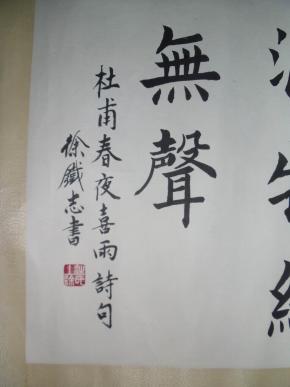 無聲
杜甫春夜喜雨詩句
徐鐵志書